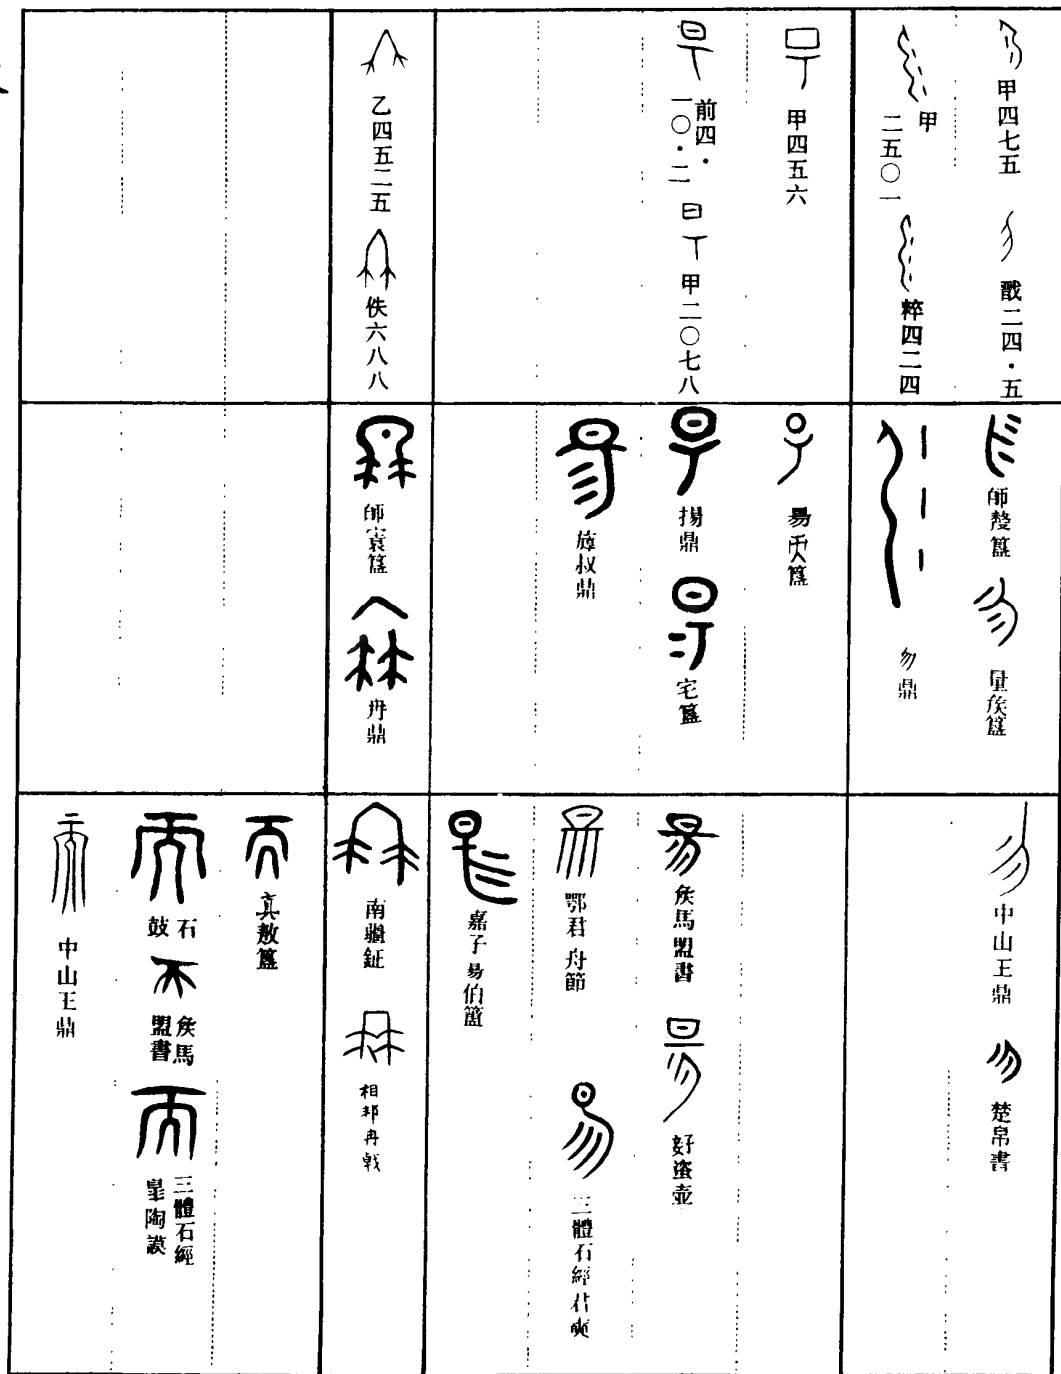 甲四七五
戩二四·五
甲二五〇一
粹四二四
甲四五六
前四·一〇·二
甲二〇七八
乙四五二五
佚六八八
師𠭰簋
量侯簋
勿鼎
易天簋
揚鼎
宅簋
旂叔鼎
師寰簋
冉鼎
中山王鼎
楚帛書
矦馬盟書
好盗壺
鄂君舟節
三體石經君奭
嘉子易伯簠
南疆鉦
相邦冉戟
真敖簋
石鼓
矦馬盟書
三體石經皐陶謨
中山王鼎